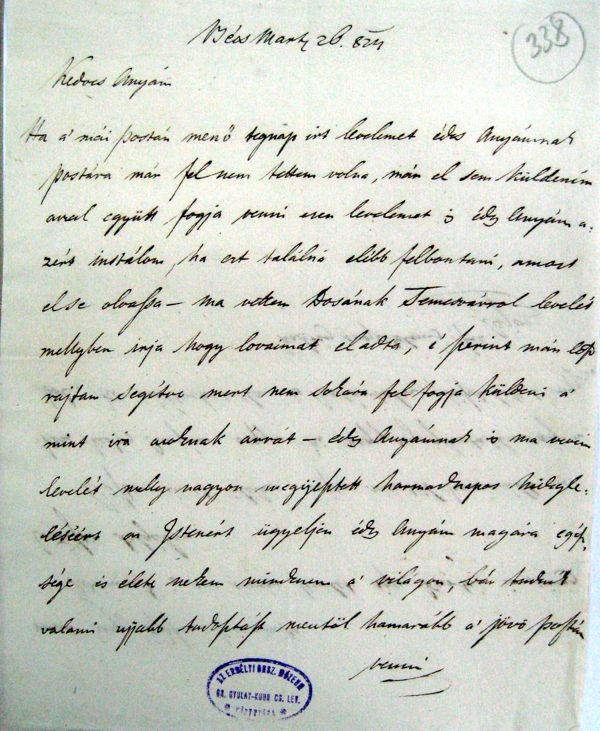 Bécs Martz 26. 824
338
Kedves Anyám
Ha a' mái postán menő tegnap irt levelemet édes Anyámnak
postára már fel nem tettem volna, mán el sem küldeném
avval együtt fogja venni ezen levelemet is édes Anyám a-
zért instálom, ha ezt találná elébb felbontani, amazt
el se olvassa — ma vettem Dosának Temesvárrol levelét
mellyben irja hogy lovaimat eladta, é szerint mán
rajtam segítve mert nem sokára fel fogja küldeni a'
mint irá azoknak árrát — édes Anyámnak is ma vevém
levelét melly nagyon megijesztett harmadnapos hidegle-
léséért az Istenért ügyeljen édes Anyám magára egés-
sége és élete nekem mindenem a' világon, bár tudnék
valami ujjabb tudosítást mentöl hamarább a' jövö postán
venni
AZ ERDÉLYI ORSZ. MÚZEUM
GR. GYULAY-KUUN CS. LEV.